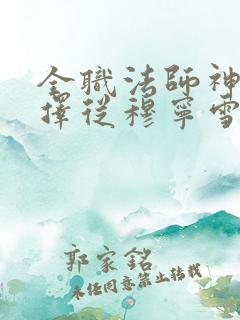 全職法師神
擇從穆寧雪
郭家銘
未經同意禁止轉載